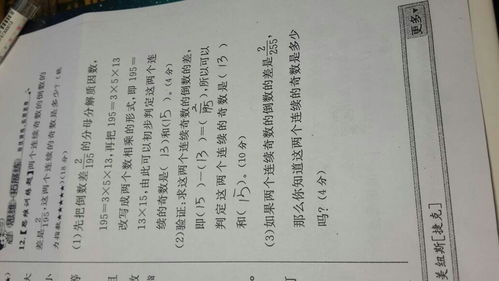 12.【思维训练题】两个连续奇数的倒数的
差是2/195,这两个连续的奇数是多少?(能
力指数★★★★★)(18分)
(1)先把倒数差2/195的分母分解质因数,
195=3×5×13,再把195=3×5×13
改写成两个数相乘的形式,即195=
13×15,由此可以初步判定这两个连
续的奇数是(13)和(15)。(4分)
(2)验证:求这两个连续奇数的倒数的差,
即(15)-(13)=(2/195),所以可以
判定这两个连续的奇数是(13)
和(15)。(10分)
(3)如果两个连续奇数的倒数的差是2/255,
那么你知道这两个连续的奇数是多少
吗?(4分)
更多
美纽斯[捷克]